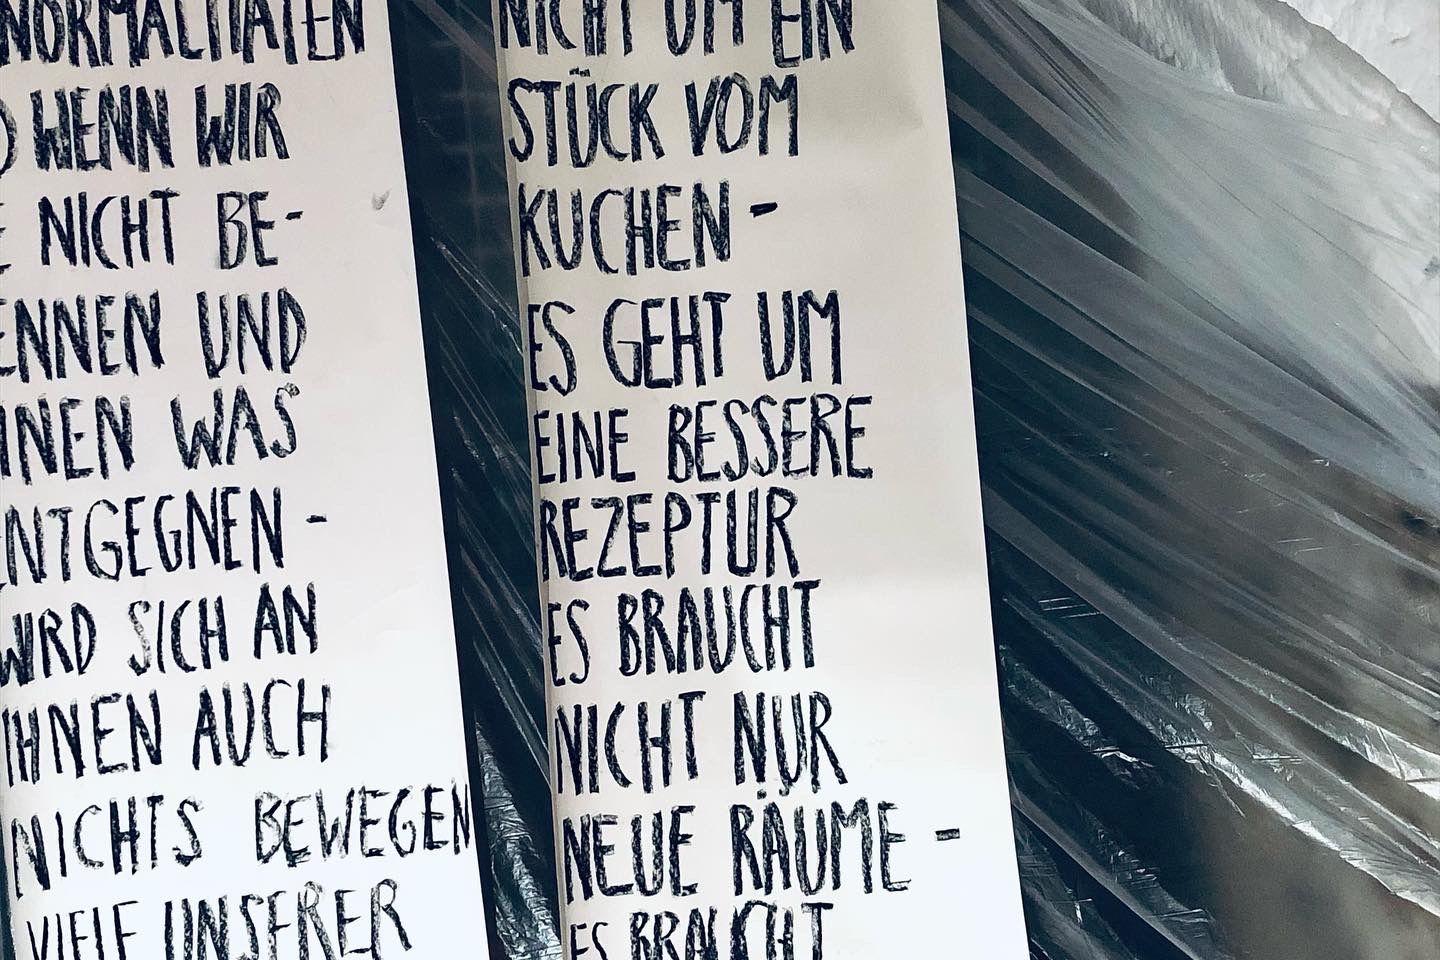 NORMALITÄTEN
WENN WIR
NICHT BE-
ENNEN UND
HNEN WAS
ENTGEGNEN -
WIRD SICH AN
IHNEN AUCH
NICHTS BEWEGEN
VIELE UNSERER
NICHT UM EIN
STÜCK VOM
KUCHEN -
ES GEHT UM
EINE BESSERE
REZEPTUR
ES BRAUCHT
NICHT NUR
NEUE RÄUME -
ES BRAUCHT